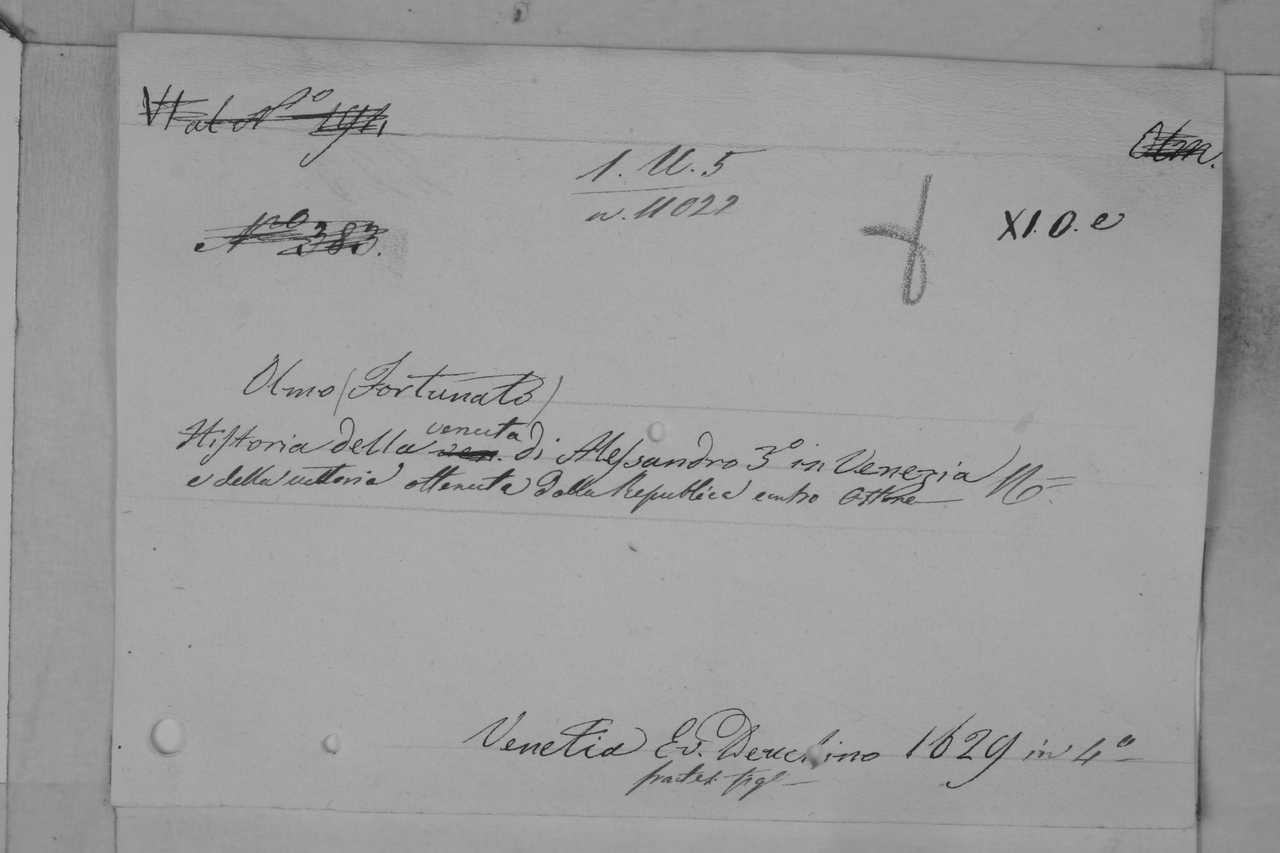 VI at Nº 191
Olm.
1. U. 5
n. 11022
XI. O. e
Nº 383.
Olmo (Fortunato)
venuta
Historia della ven. di Alessandro 3º in Venezia
e della vittoria ottenuta dalla Republica contro Ottone
Venetia Ev. Deuchino 1629 in 4º